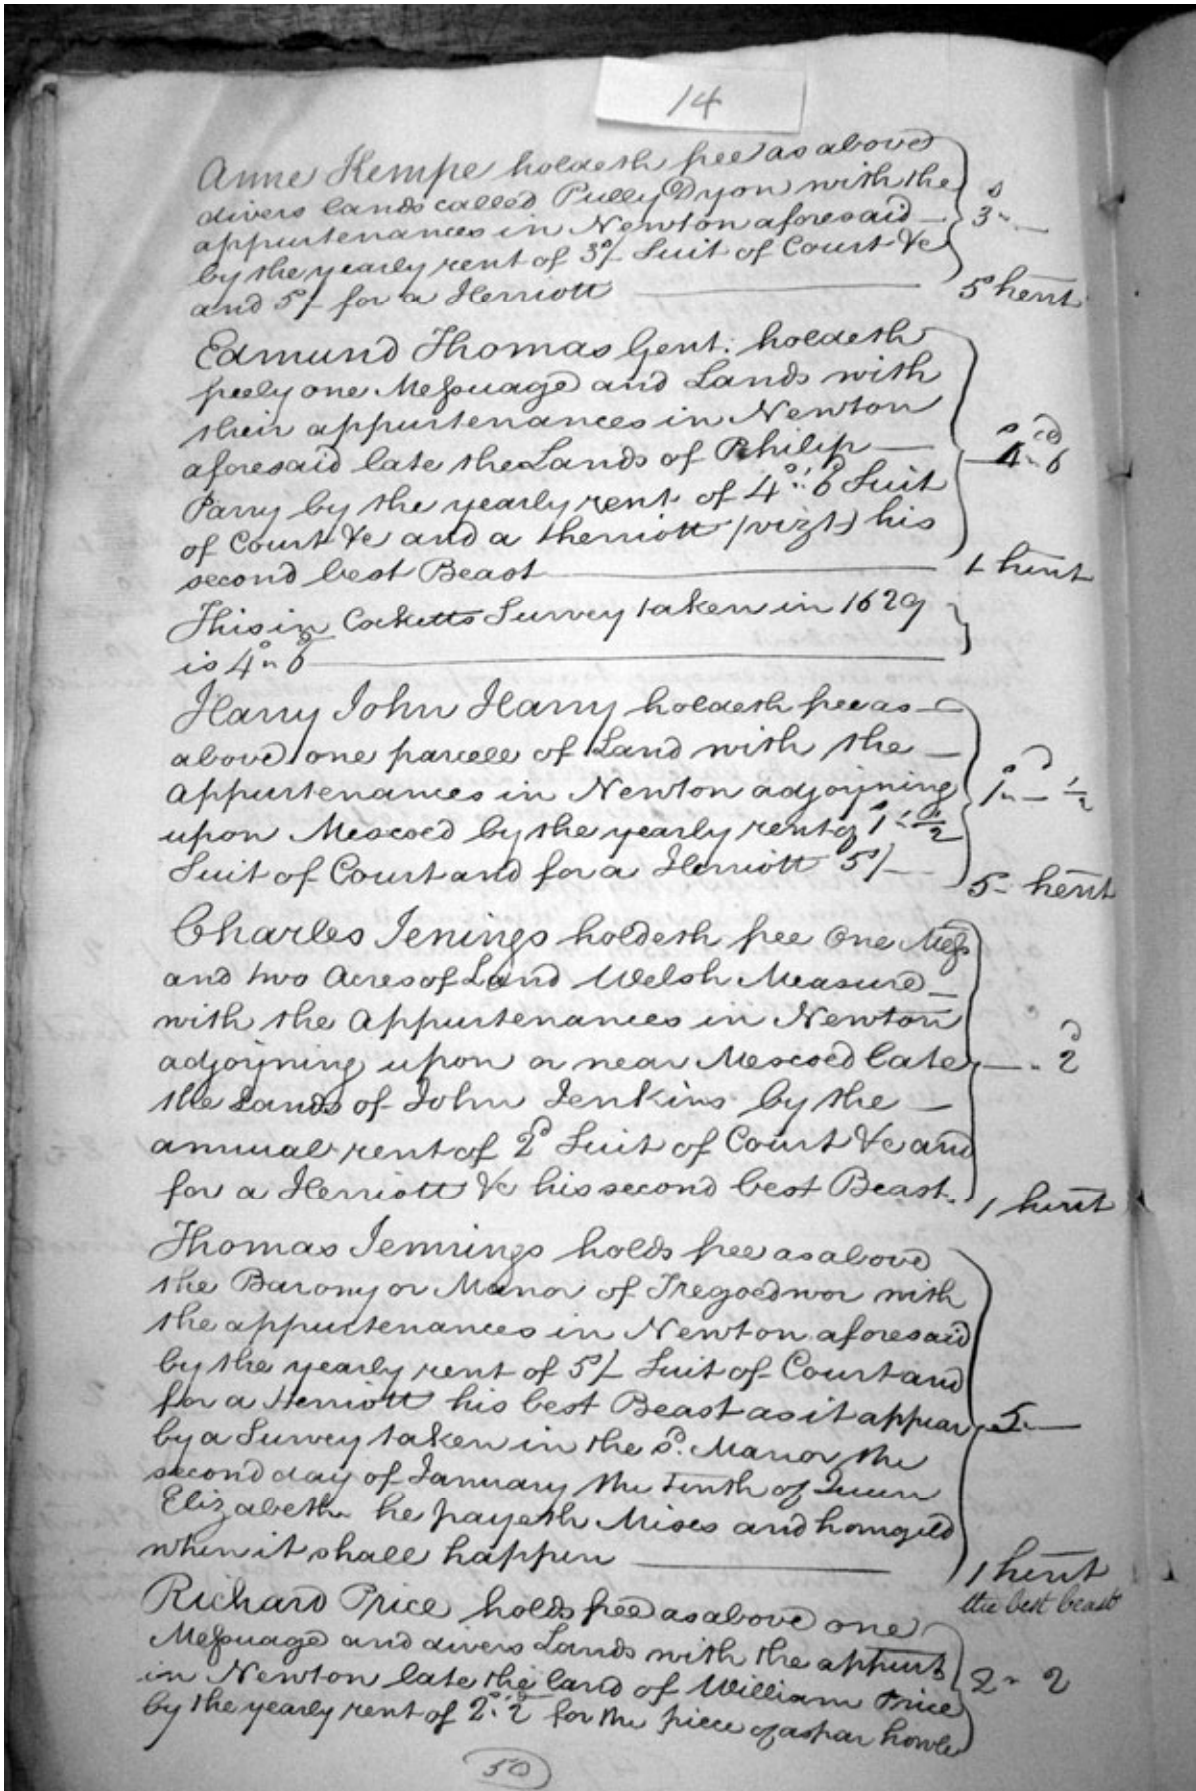 14
Anne Kempe holdeth free as above
divers lands called Pully Dyon with the
appurtenances in Newton aforesaid — 3s " —
by the yearly rent of 3s/- Suit of Court &c
and 5s/- for a Herriott — 5s herit
Edmund Thomas Gent: holdeth
freely one Messuage and Lands with
their appurtenances in Newton
aforesaid late the Lands of Philip — 4s " 6d
Parry by the yearly rent of 4s " 6d Suit
of Court &c and a Herriott (vizt) his
second best Beast — 1 herit
This in Cocketts Survey taken in 1629
is 4s " 6d
Harry John Harry holdeth free as
above one parcell of Land with the —
appurtenances in Newton adjoyning 1s " — ½d
upon Mescoed by the yearly rent of 1s " ½d
Suit of Court and for a Herriott 5s/- — 5 - herit
Charles Jenings holdeth free One Mess
and two Acres of Land Welsh Measure —
with the Appurtenances in Newton
adjoyning upon or near Mescoed late — " 2d
the Lands of John Jenkins by the —
annual rent of 2d Suit of Court &c and
for a Herriott &c his second best Beast. 1 herit
Thomas Jennings holds free as above
the Barony or Manor of Tregoedwor with
the appurtenances in Newton aforesaid
by the yearly rent of 5s/- Suit of Court and
for a Herriott his best Beast as it appear 5 " —
by a Survey taken in the sd. Manor the
second day of January the Tenth of Queen
Elizabeth he payeth Mises and homgild
when it shall happen — 1 herit
the best beast
Richard Price holds free as above one
Messuage and divers Lands with the appurt
in Newton late the land of William Price 2 " 2
by the yearly rent of 2s " 2d for the piece of
50